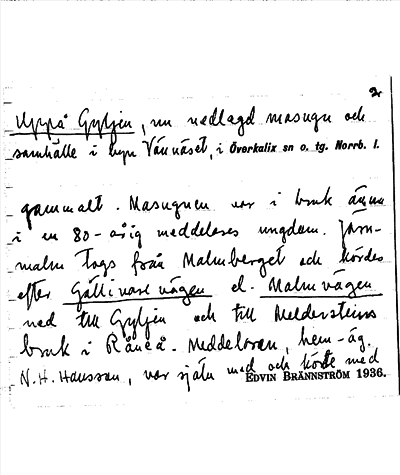 2
Uppå Gyljen, nu nedlagd masugn och
samhälle i byn Vännäset, i Överkalix sn o. tg. Norrb. l.
gammalt. Masugnen var i bruk ännu
i en 80-årig meddelares ungdom. Järn-
malm togs från Malmberget och kördes
efter Gällivarevägen el. Malmvägen
ned till Gyljen och till Meldersteins
bruk i Råneå. Meddelaren, hem-äg.
N.H. Hansson, var själv med och körde med
EDVIN BRÄNNSTRÖM 1936.